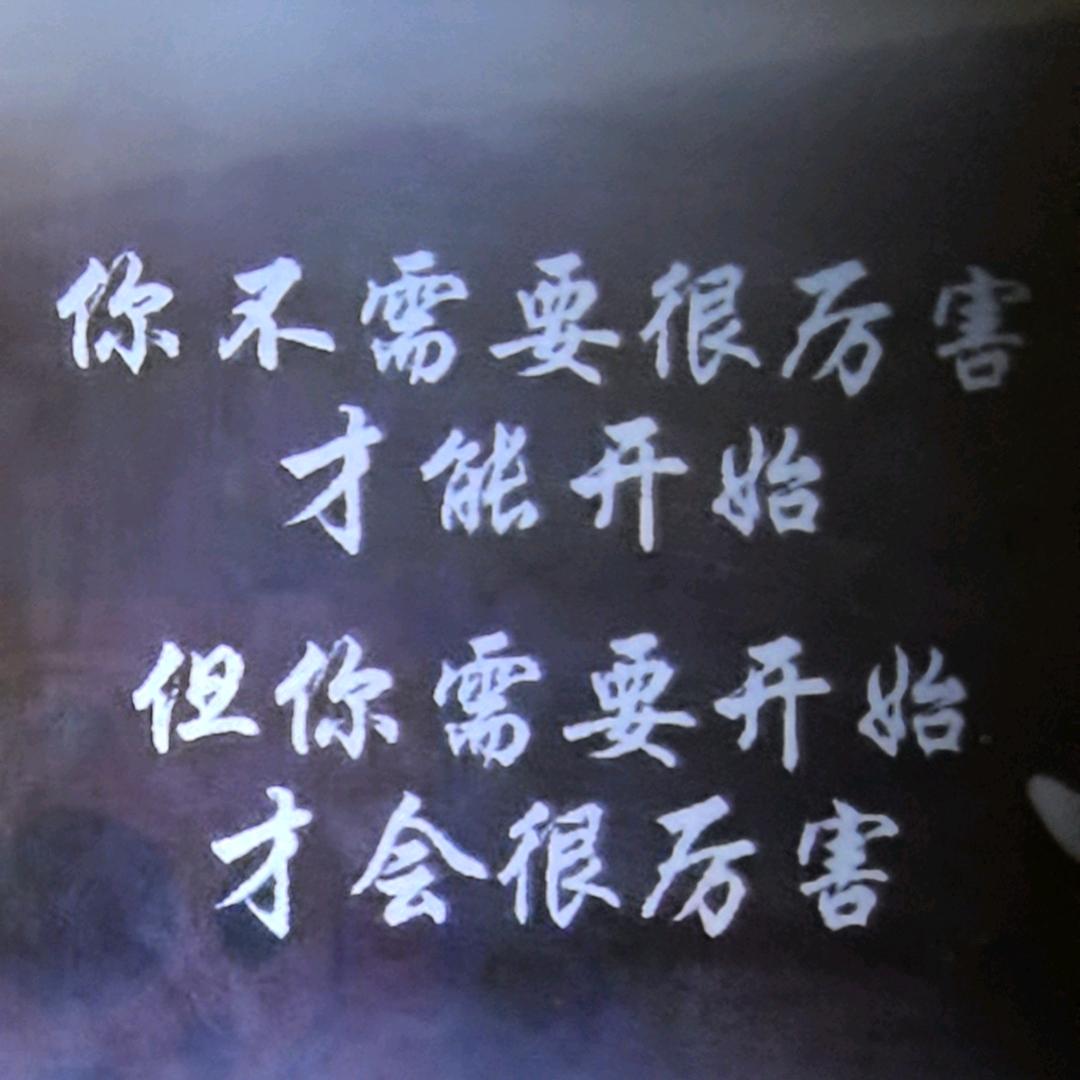 你不需要很厉害
才能开始
但你需要开始
才会很厉害